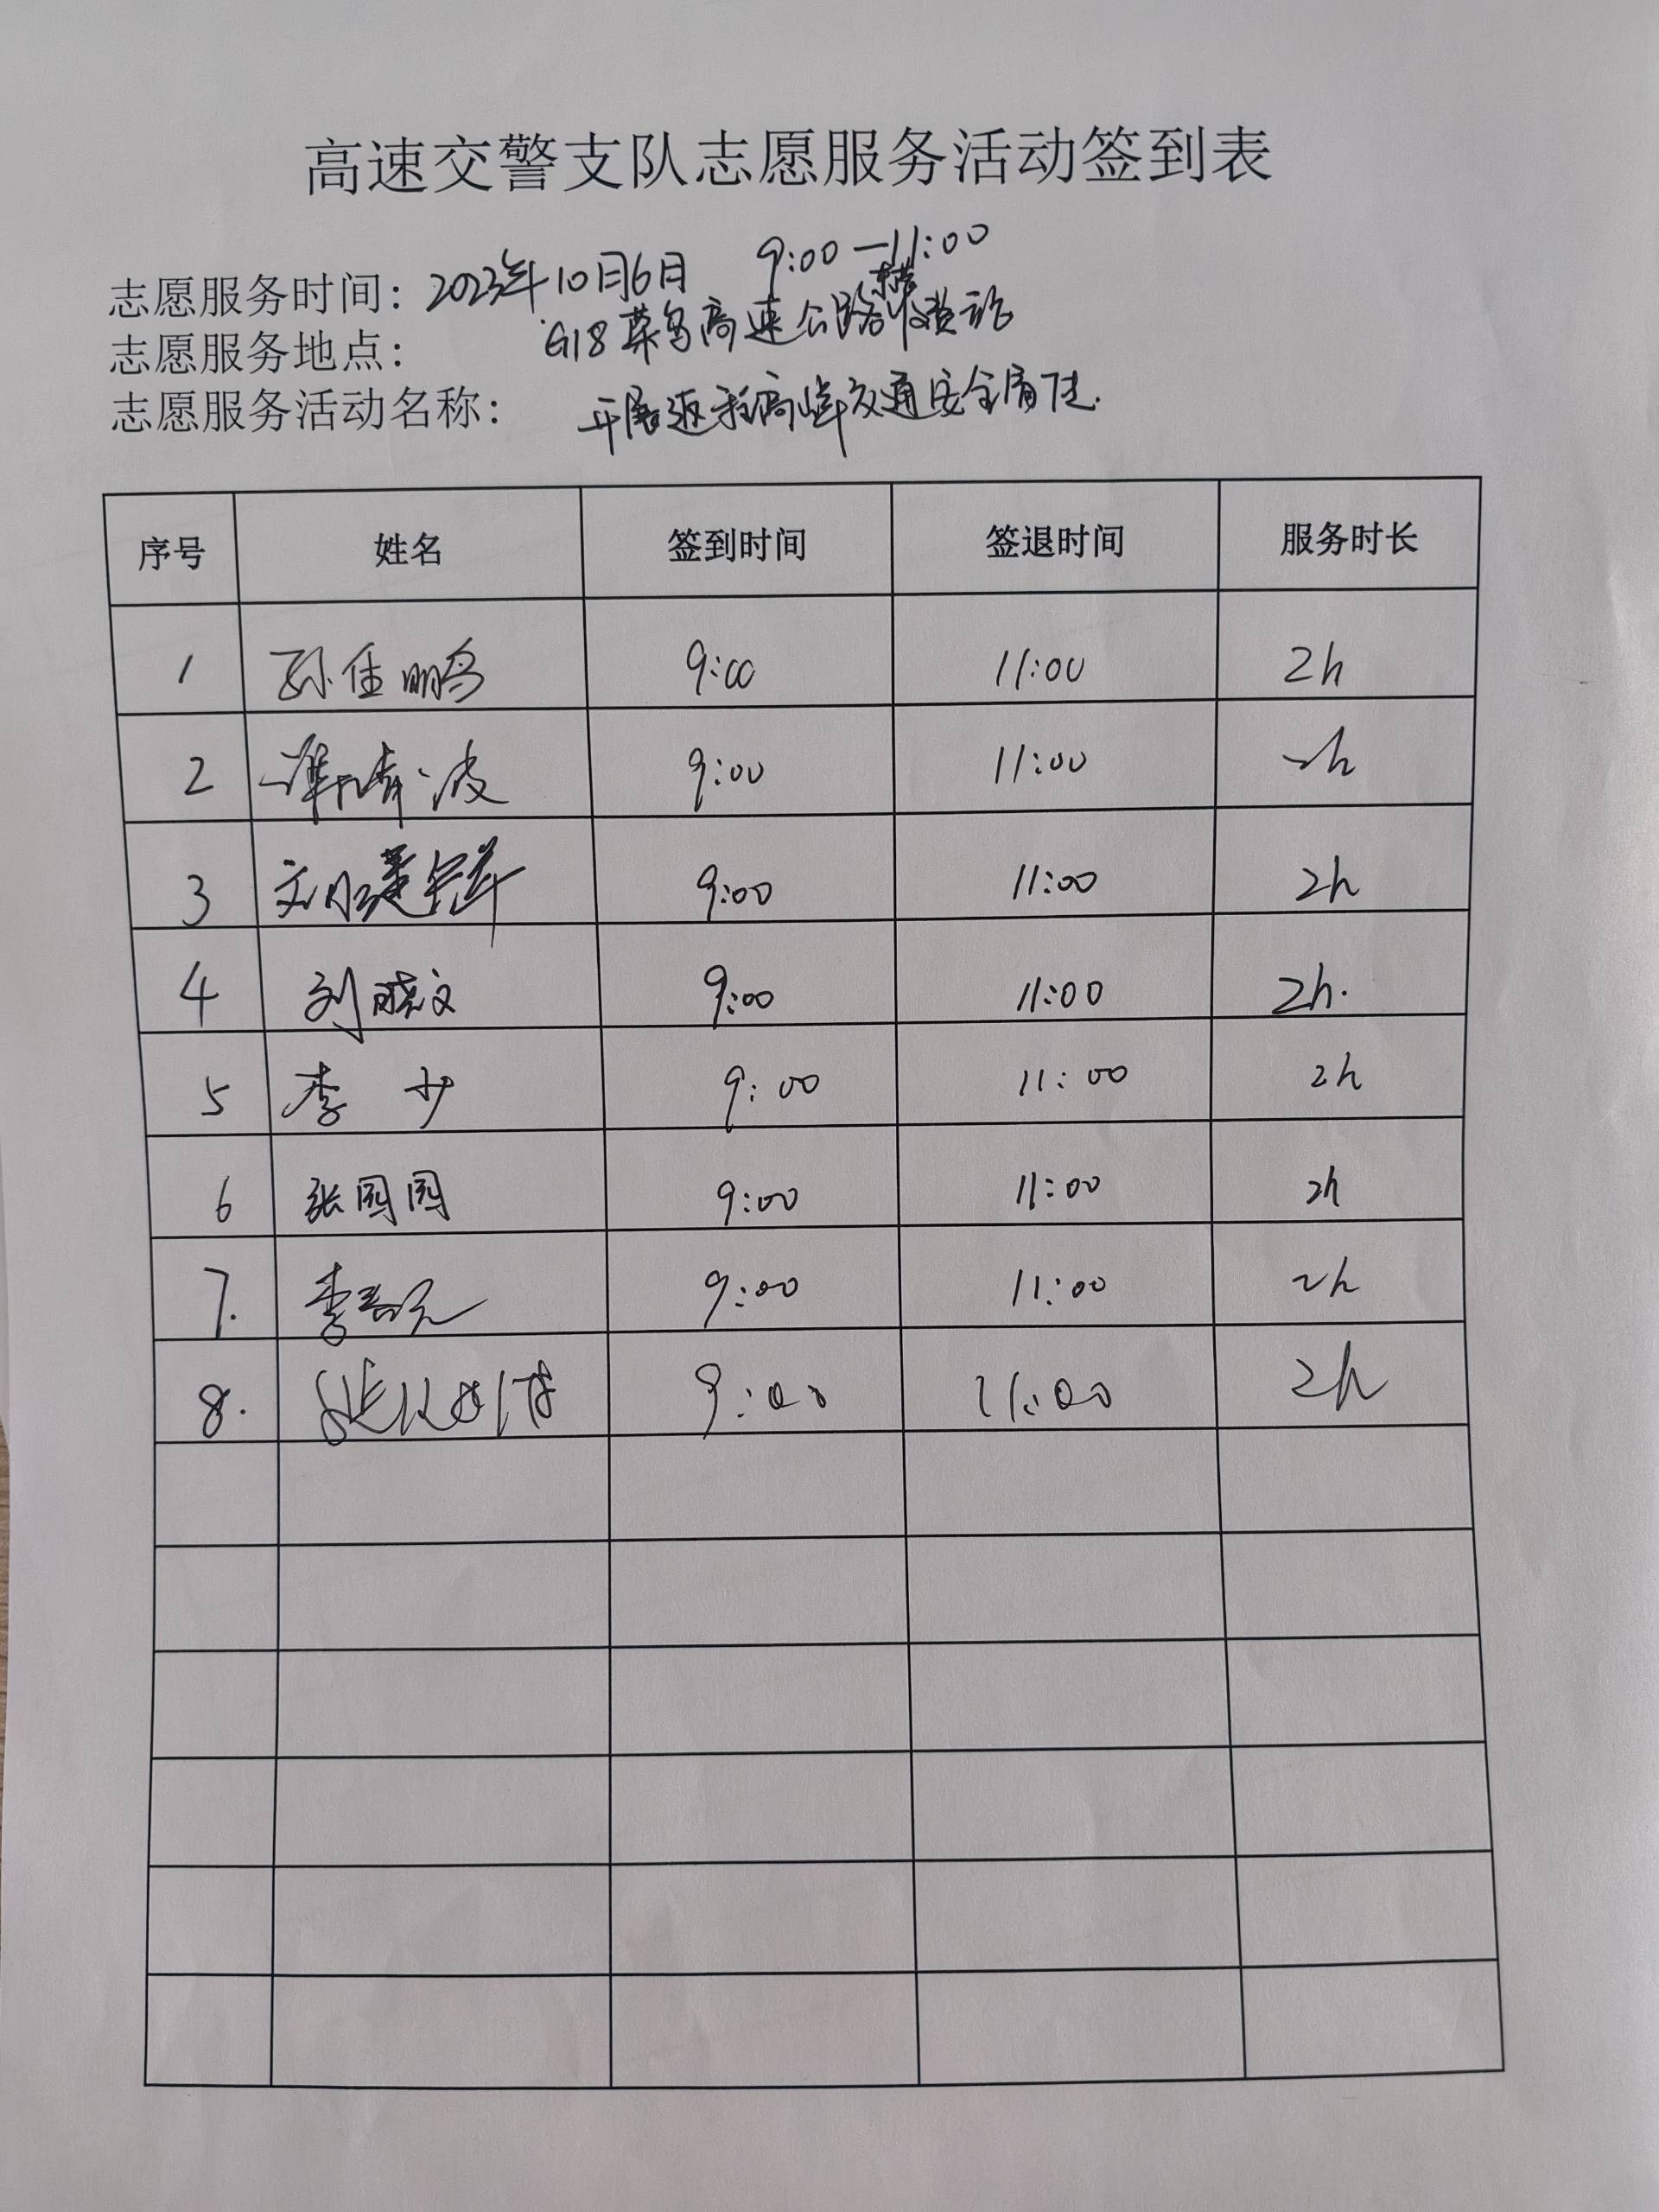 高速交警支队志愿服务活动签到表
志愿服务时间：2023年10月6日 9:00—11:00
志愿服务地点： G18荣乌高速公路收费站
志愿服务活动名称： 开展返程高峰交通安全宣传.
序号 姓名 签到时间 签退时间 服务时长
1 孙佳鹏 9:00 11:00 2h
2 9:00 11:00 2h
3 9:00 11:00 2h
4 刘晓文 9:00 11:00 2h.
5 李 少 9:00 11:00 2h
6 张园园 9:00 11:00 2h
7. 李 9:00 11:00 2h
8. 9:00 11:00 2h